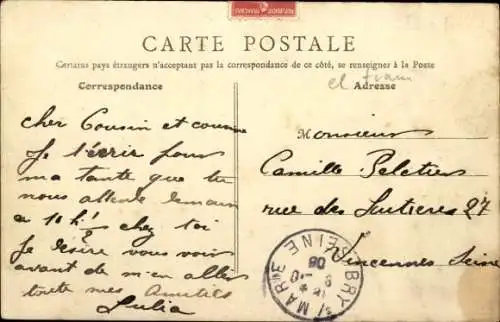 RÉPUBLIQUE FRANÇAISE
CARTE POSTALE
Certains pays étrangers n'acceptant pas la correspondance de ce côté, se renseigner à la Poste
Correspondance
Adresse
cher Cousin et cousine
Je t'écrir pour
ma tante que tu
nous attende demain
a 10 h½ chez toi
Je désire vous voir
avant de m'en aller
toute mes Amitiés
Julia
Monsieur
Camille Peletier
rue des 27
Vincennes Seine
BRY S/ MARNE
SEINE
08